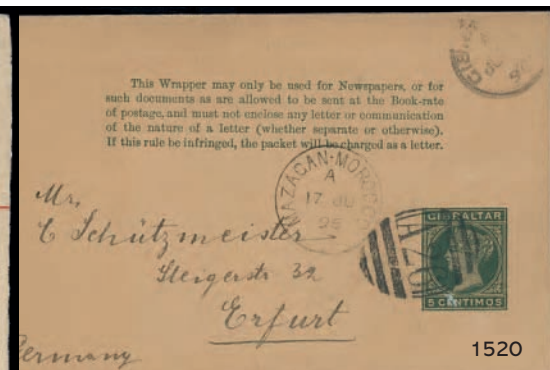 This Wrapper may only be used for Newspapers, or for
such documents as are allowed to be sent at the Book-rate
of postage, and must not enclose any letter or communication
of the nature of a letter (whether separate or otherwise).
If this rule be infringed, the packet will be charged as a letter.
MAZAGAN-MOROCCO
A
17 JU
95
Mr,
C Schützmeister
Steigerstr 32
Erfurt
Germany
GIBRALTAR
A26
5 CENTIMOS
1520